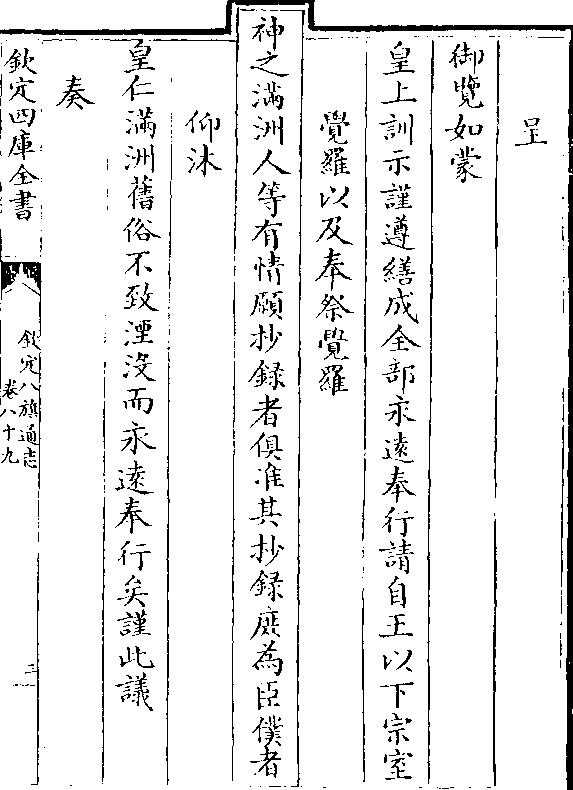 呈
御覽如蒙
皇上訓示謹遵繕成全部永遠奉行請自王以下宗室
覺羅以及奉祭覺羅
神之滿洲人等有情願抄錄者俱准其抄錄庶為臣僕者
仰沐
皇仁滿洲舊俗不致湮沒而永遠奉行矣謹此議
奏
欽定四庫全書
欽定八旗通志
卷八十九
三